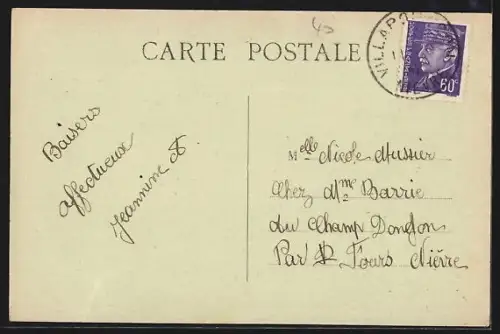 40
CARTE POSTALE
VILLAPO
60c
Baisers
affectueux
Jeannine
Melle Nicole Hussier
Chez Mme Barrie
du Champ Donjon
Par St Fours Nièvre